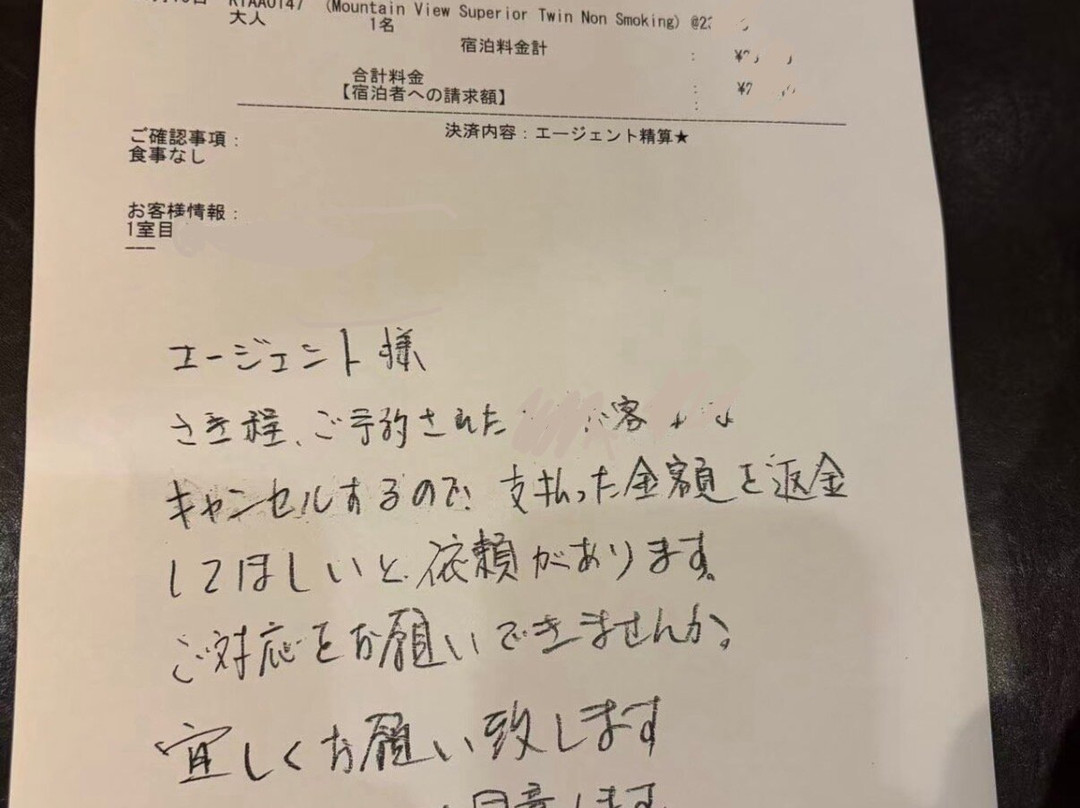 RTAA0147 (Mountain View Superior Twin Non Smoking) @2
大人 1名
宿泊料金計 : ¥
合計料金 : ¥
【宿泊者への請求額】 :
ご確認事項: 決済内容:エージェント精算★
食事なし
お客様情報:
1室目
---
エージェント様
さき程、ご予約された 客
キャンセルするので、支払った金額を返金
してほしいと依頼があります。
ご対応をお願いできませんか。
宜しくお願い致します
同意します